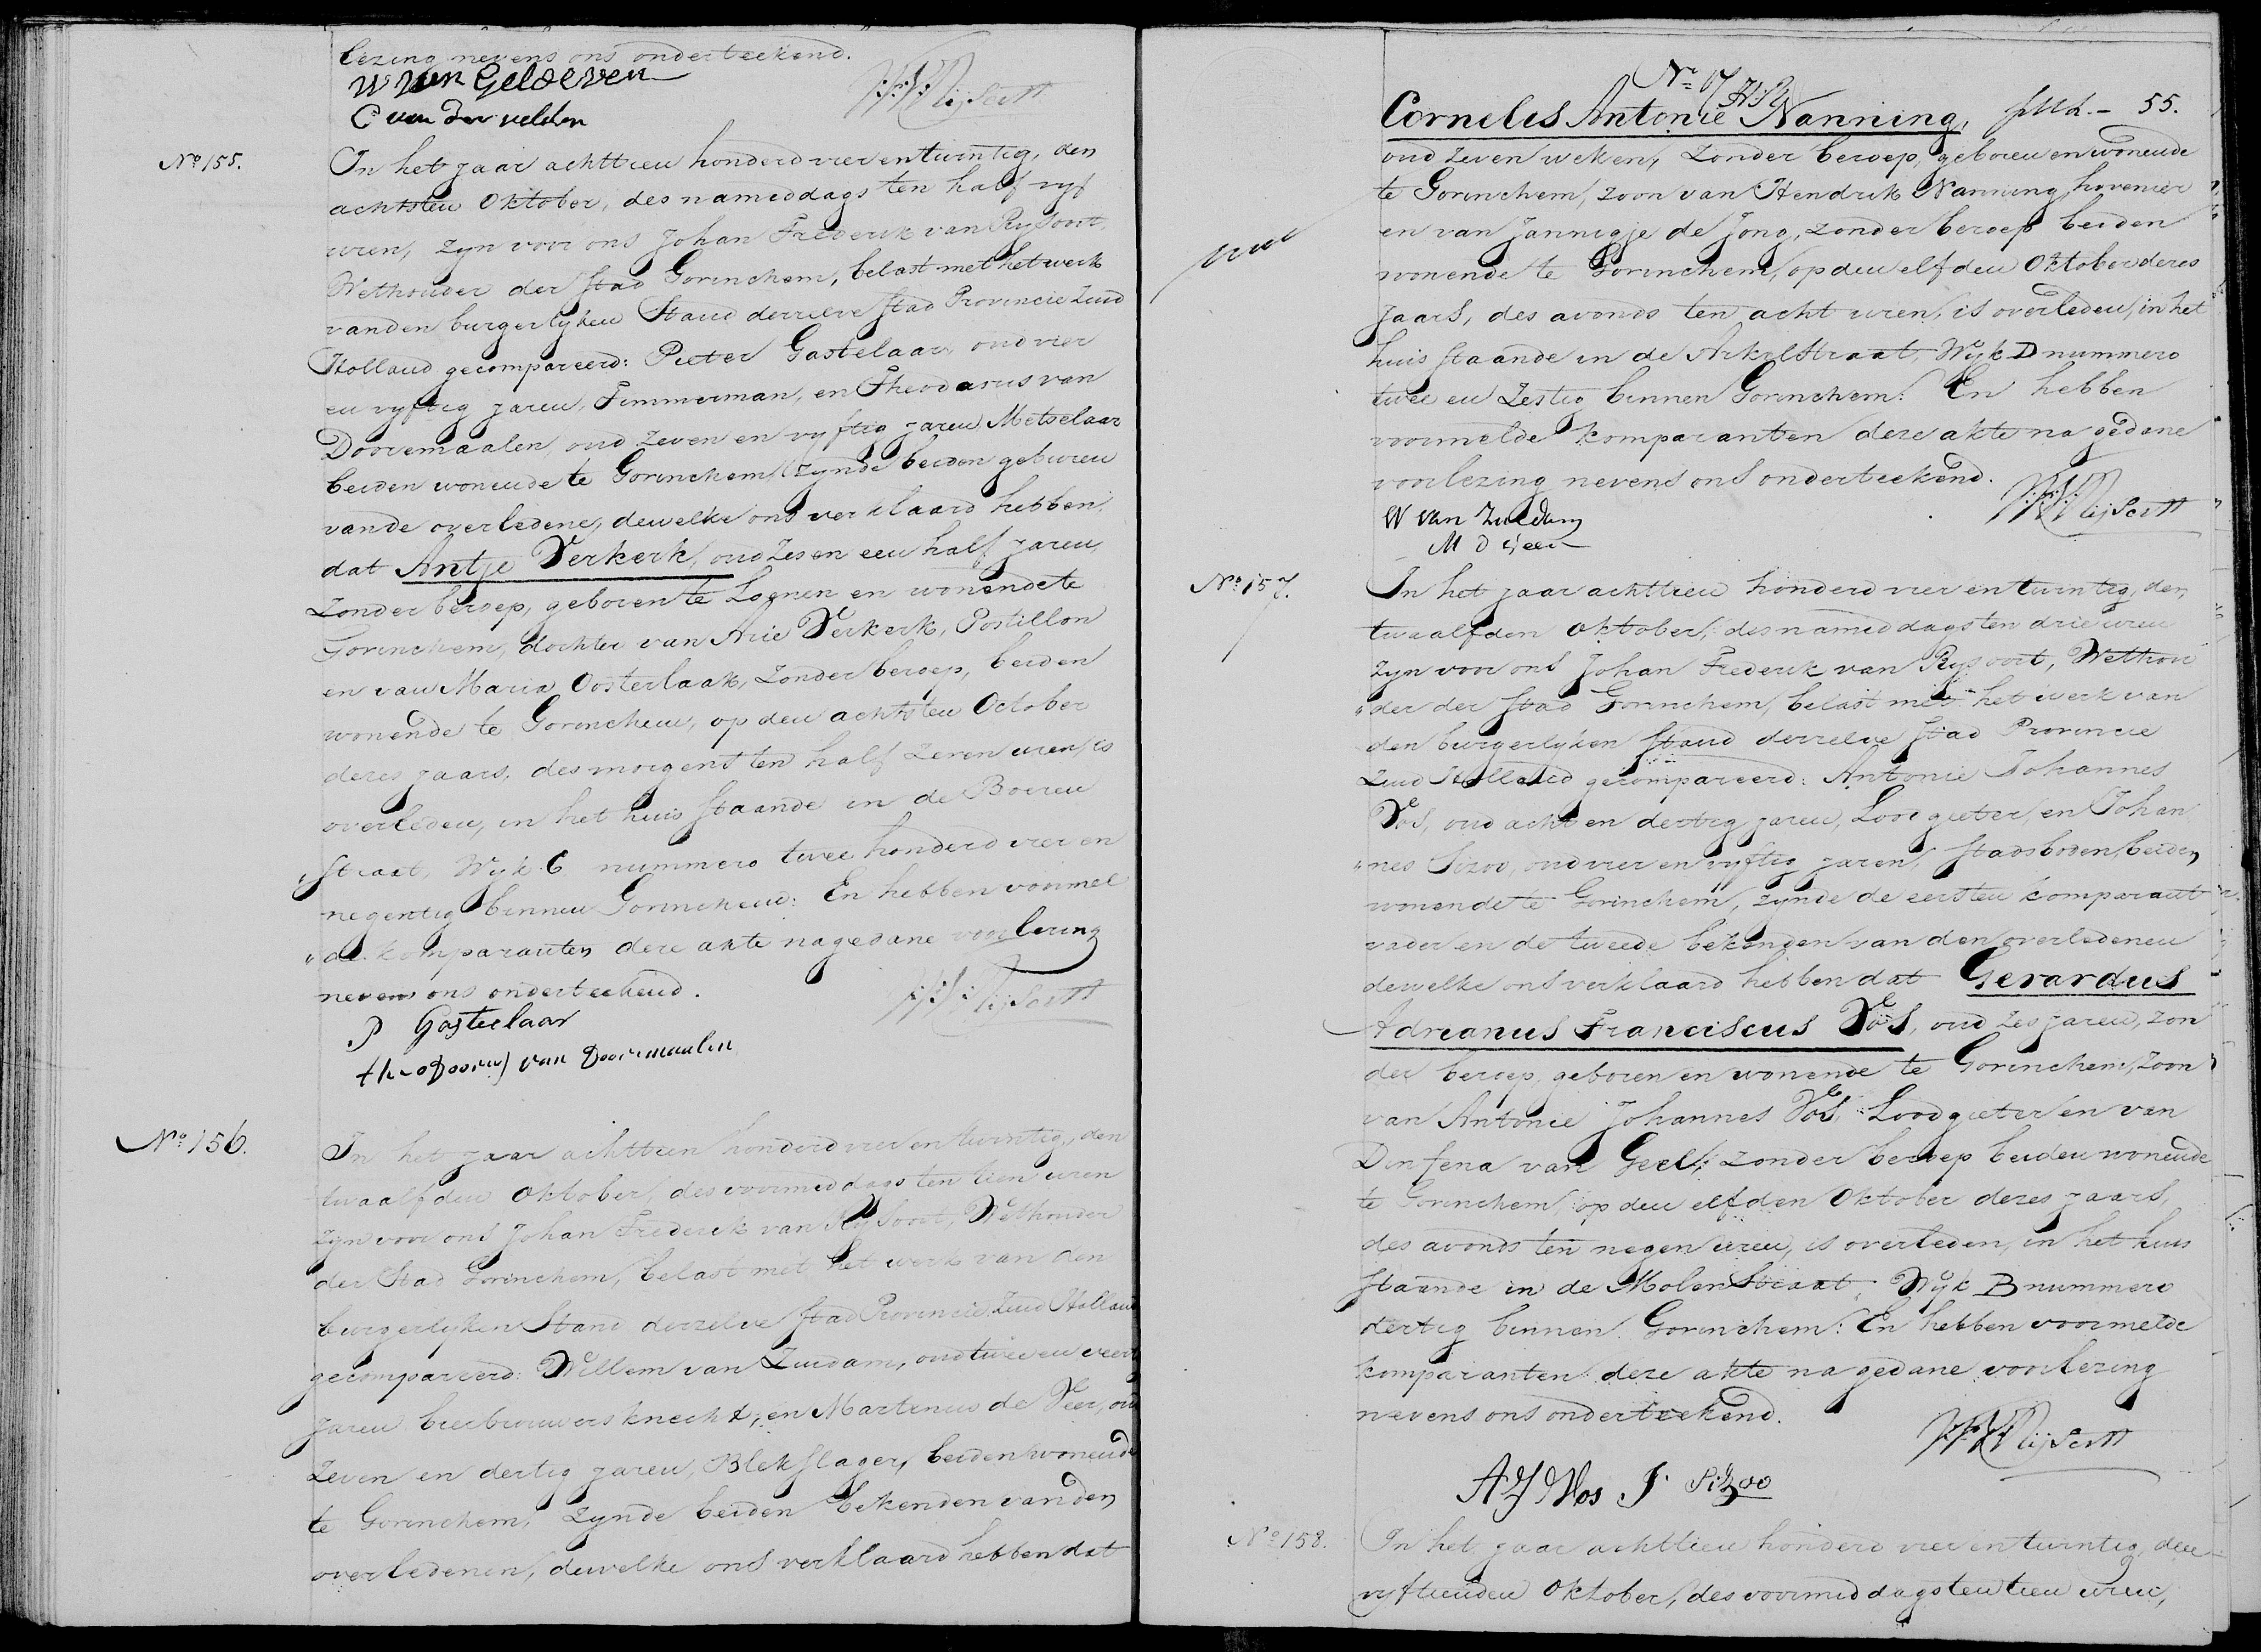 lezing nevens ons onderteekend.
W van Gelderen
C van der velden
No 155.
In het jaar achttien honderd vier en twintig, den
achtsten Oktober, des namiddags ten half vyf
uren, zyn voor ons Johan Frederik van Rysoort
Wethouder der stad Gorinchem, belast met het werk
van den burgerlyken Stand derzelve stad Provincie Zuid
Holland gecompareerd: Pieter Gastelaar oud vier
en vyftig jaren, Timmerman, en Theodorus van
Dooremaalen, oud zeven en vyftig jaren Metselaar
beiden wonende te Gorinchem, zynde beiden geburen
van de overledene, dewelke ons verklaard hebben,
dat Antje Verkerk, oud zes en een half jaren,
zonder beroep, geboren te Loenen en wonende te
Gorinchem, dochter van Arie Verkerk, Postillon
en van Maria Oosterlaak, zonder beroep, beiden
wonende te Gorinchem, op den achtsten October
dezes jaars, des morgens ten half zeven uren, is
overleden, in het huis staande in de Boeren
straat, Wyk C nummero twee honderd vier en
negentig binnen Gorinchem: En hebben voormel
„de komparanten deze akte na gedane voorlezing
nevens ons onderteekend.
P Gasteelaar
theodoorus van Dooremaalen
No 156.
In het jaar achttien honderd vier en twintig, den
twaalfden Oktober, des voormiddags ten tien uren
zyn voor ons Johan Frederik van Rysoort, Wethouder
der Stad Gorinchem, belast met het werk van den
burgerlyken Stand derzelve stad Provincie Zuid Holland
gecompareerd: Willem van Zuidam, oud twee en veertig
jaren bierbrouwersknecht, en Martinus de Veer, oud
zeven en dertig jaren, Blekslager, beiden wonende
te Gorinchem, zynde beiden bekenden van den
overledenen, dewelke ons verklaard hebben dat
55.
Cornelis Antonie Nanning,
oud zeven weken, zonder beroep, geboren en wonende
te Gorinchem, zoon van Hendrik Nanning, hovenier
en van Jannigje de Jong, zonder beroep beiden
wonende te Gorinchem, op den elfden Oktober dezes
jaars, des avonds ten acht uren, is overleden, in het
huis staande in de Arkelstraat, Wyk D nummero
twee en zestig binnen Gorinchem: En hebben
voormelde komparanten deze akte na gedane
voorlezing nevens ons onderteekend.
W van Zuidam
M d Veer
No 157.
In het jaar achttien honderd vier en twintig, den
twaalfden Oktober, des namiddags ten drie uren
zyn voor ons Johan Frederik van Rysoort, Wethou
„der der stad Gorinchem, belast met het werk van
den burgerlyken stand derzelve stad Provincie
Zuid Holland gecompareerd: Antonie Johannes
Vos, oud acht en dertig jaren, Loodgieter, en Johan
„nes Sizoo, oud vier en vyftig jaren, stadsboden, beiden
wonende te Gorinchem, zynde de eersten komparant
vader en de tweede bekenden van den overledenen
dewelke ons verklaard hebben dat Gerardus
Adrianus Franciscus Vos, oud zes jaren, zon
der beroep, geboren en wonende te Gorinchem, zoon
van Antonie Johannes Vos, Loodgieter en van
Dinfena van Geel, zonder beroep beiden wonende
te Gorinchem, op den elfden Oktober dezes jaars,
des avonds ten negen uren, is overleden, in het huis
staande in de Molenstraat, Wyk B nummero
dertig binnen Gorinchem: En hebben voormelde
komparanten deze akte na gedane voorlezing
nevens ons onderteekend.
A J Vos J. Sizoo
No 158.
In het jaar achttien honderd vier en twintig, den
vyftienden Oktober, des voormiddags ten tien uren,